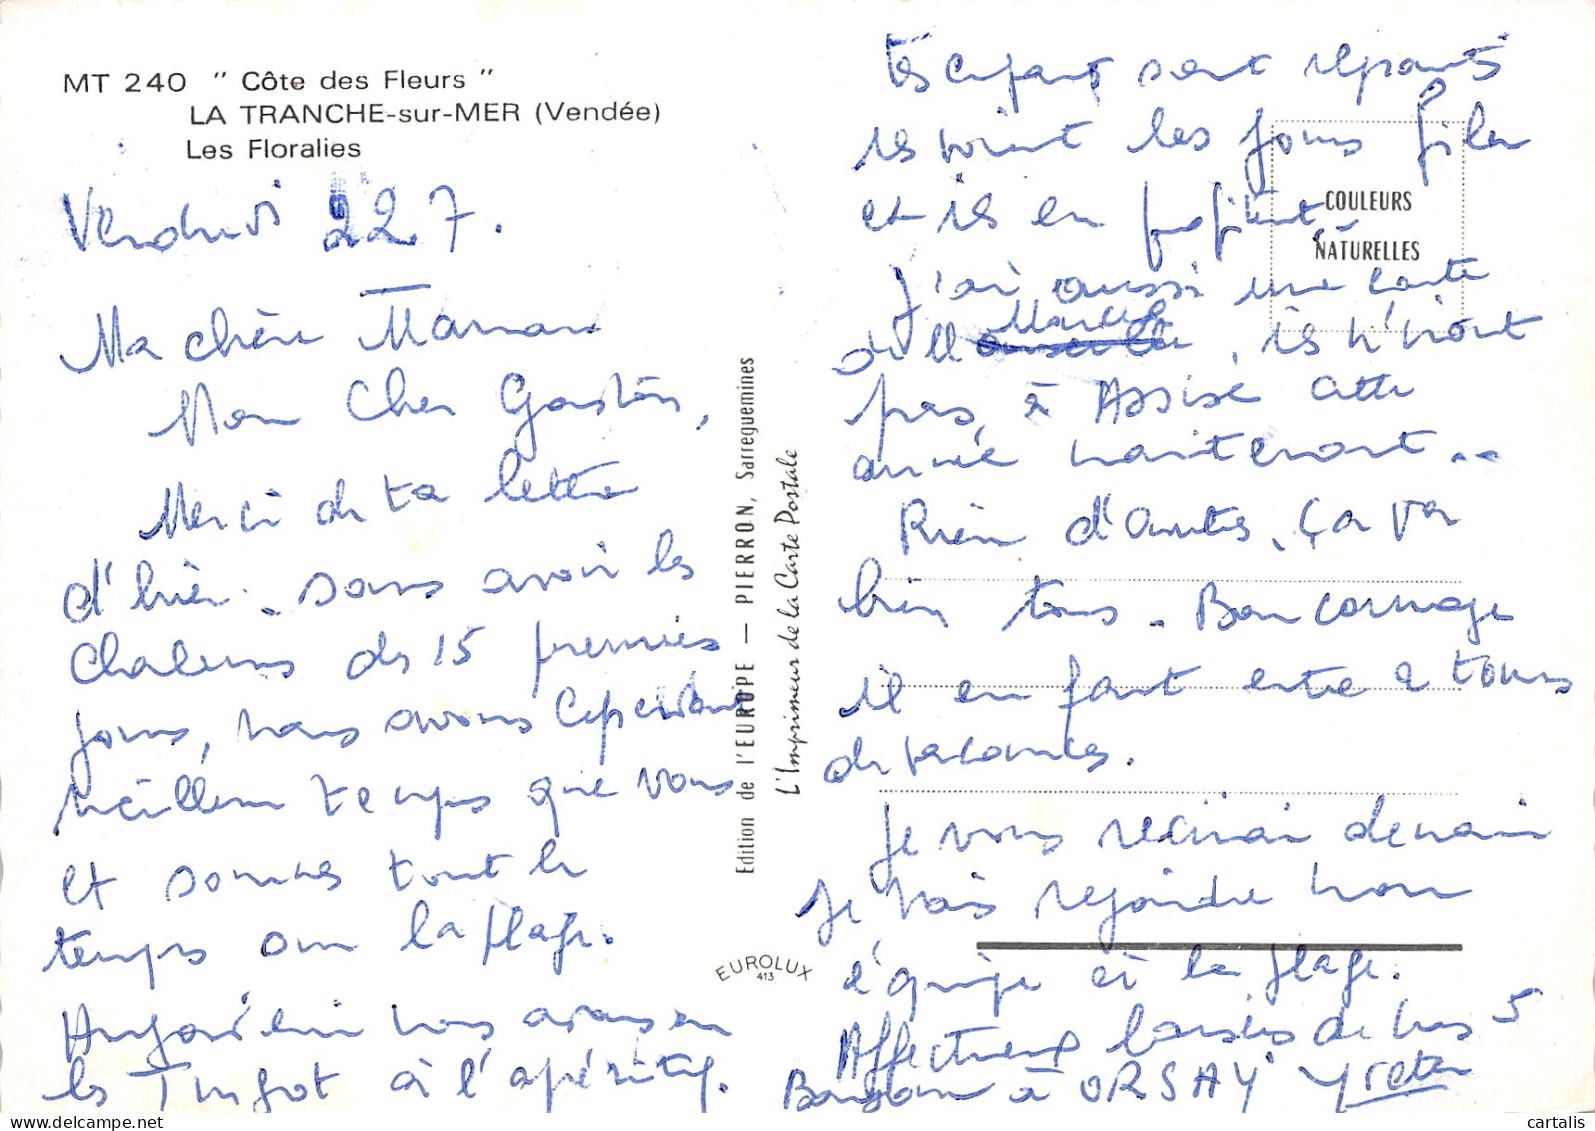 MT 240 " Côte des Fleurs "
LA TRANCHE-sur-MER (Vendée)
Les Floralies
Vendredi 22.7.
Ma chère Maman
Mon Cher Gaston,
Merci de ta lettre
d'hier. Sans avoir les
Chaleurs des 15 premiers
jours, nous avons cependant
meilleur temps que vous
et sommes tout le
temps sur la plage.
Aujourd'hui nous avons eu
les Turgot à l'apéritif.
Edition de l'EUROPE — PIERRON, Sarreguemines
L'Imprimeur de la Carte Postale
EUROLUX
413
COULEURS
NATURELLES
Les enfants sont
ils voient les jours filer
et ils en profitent.
J'ai aussi une carte
de Marcel, ils n'iront
pas à Assise cette
année maintenant..
Rien d'autres. Ça va
bien tous. Bon courage
il en faut entre 2 tours
de vacances.
Je vous récrirai demain
Je vais rejoindre mon
équipe à la plage.
Affectueux baisers de nous 5
Bonjour à ORSAY Yvette